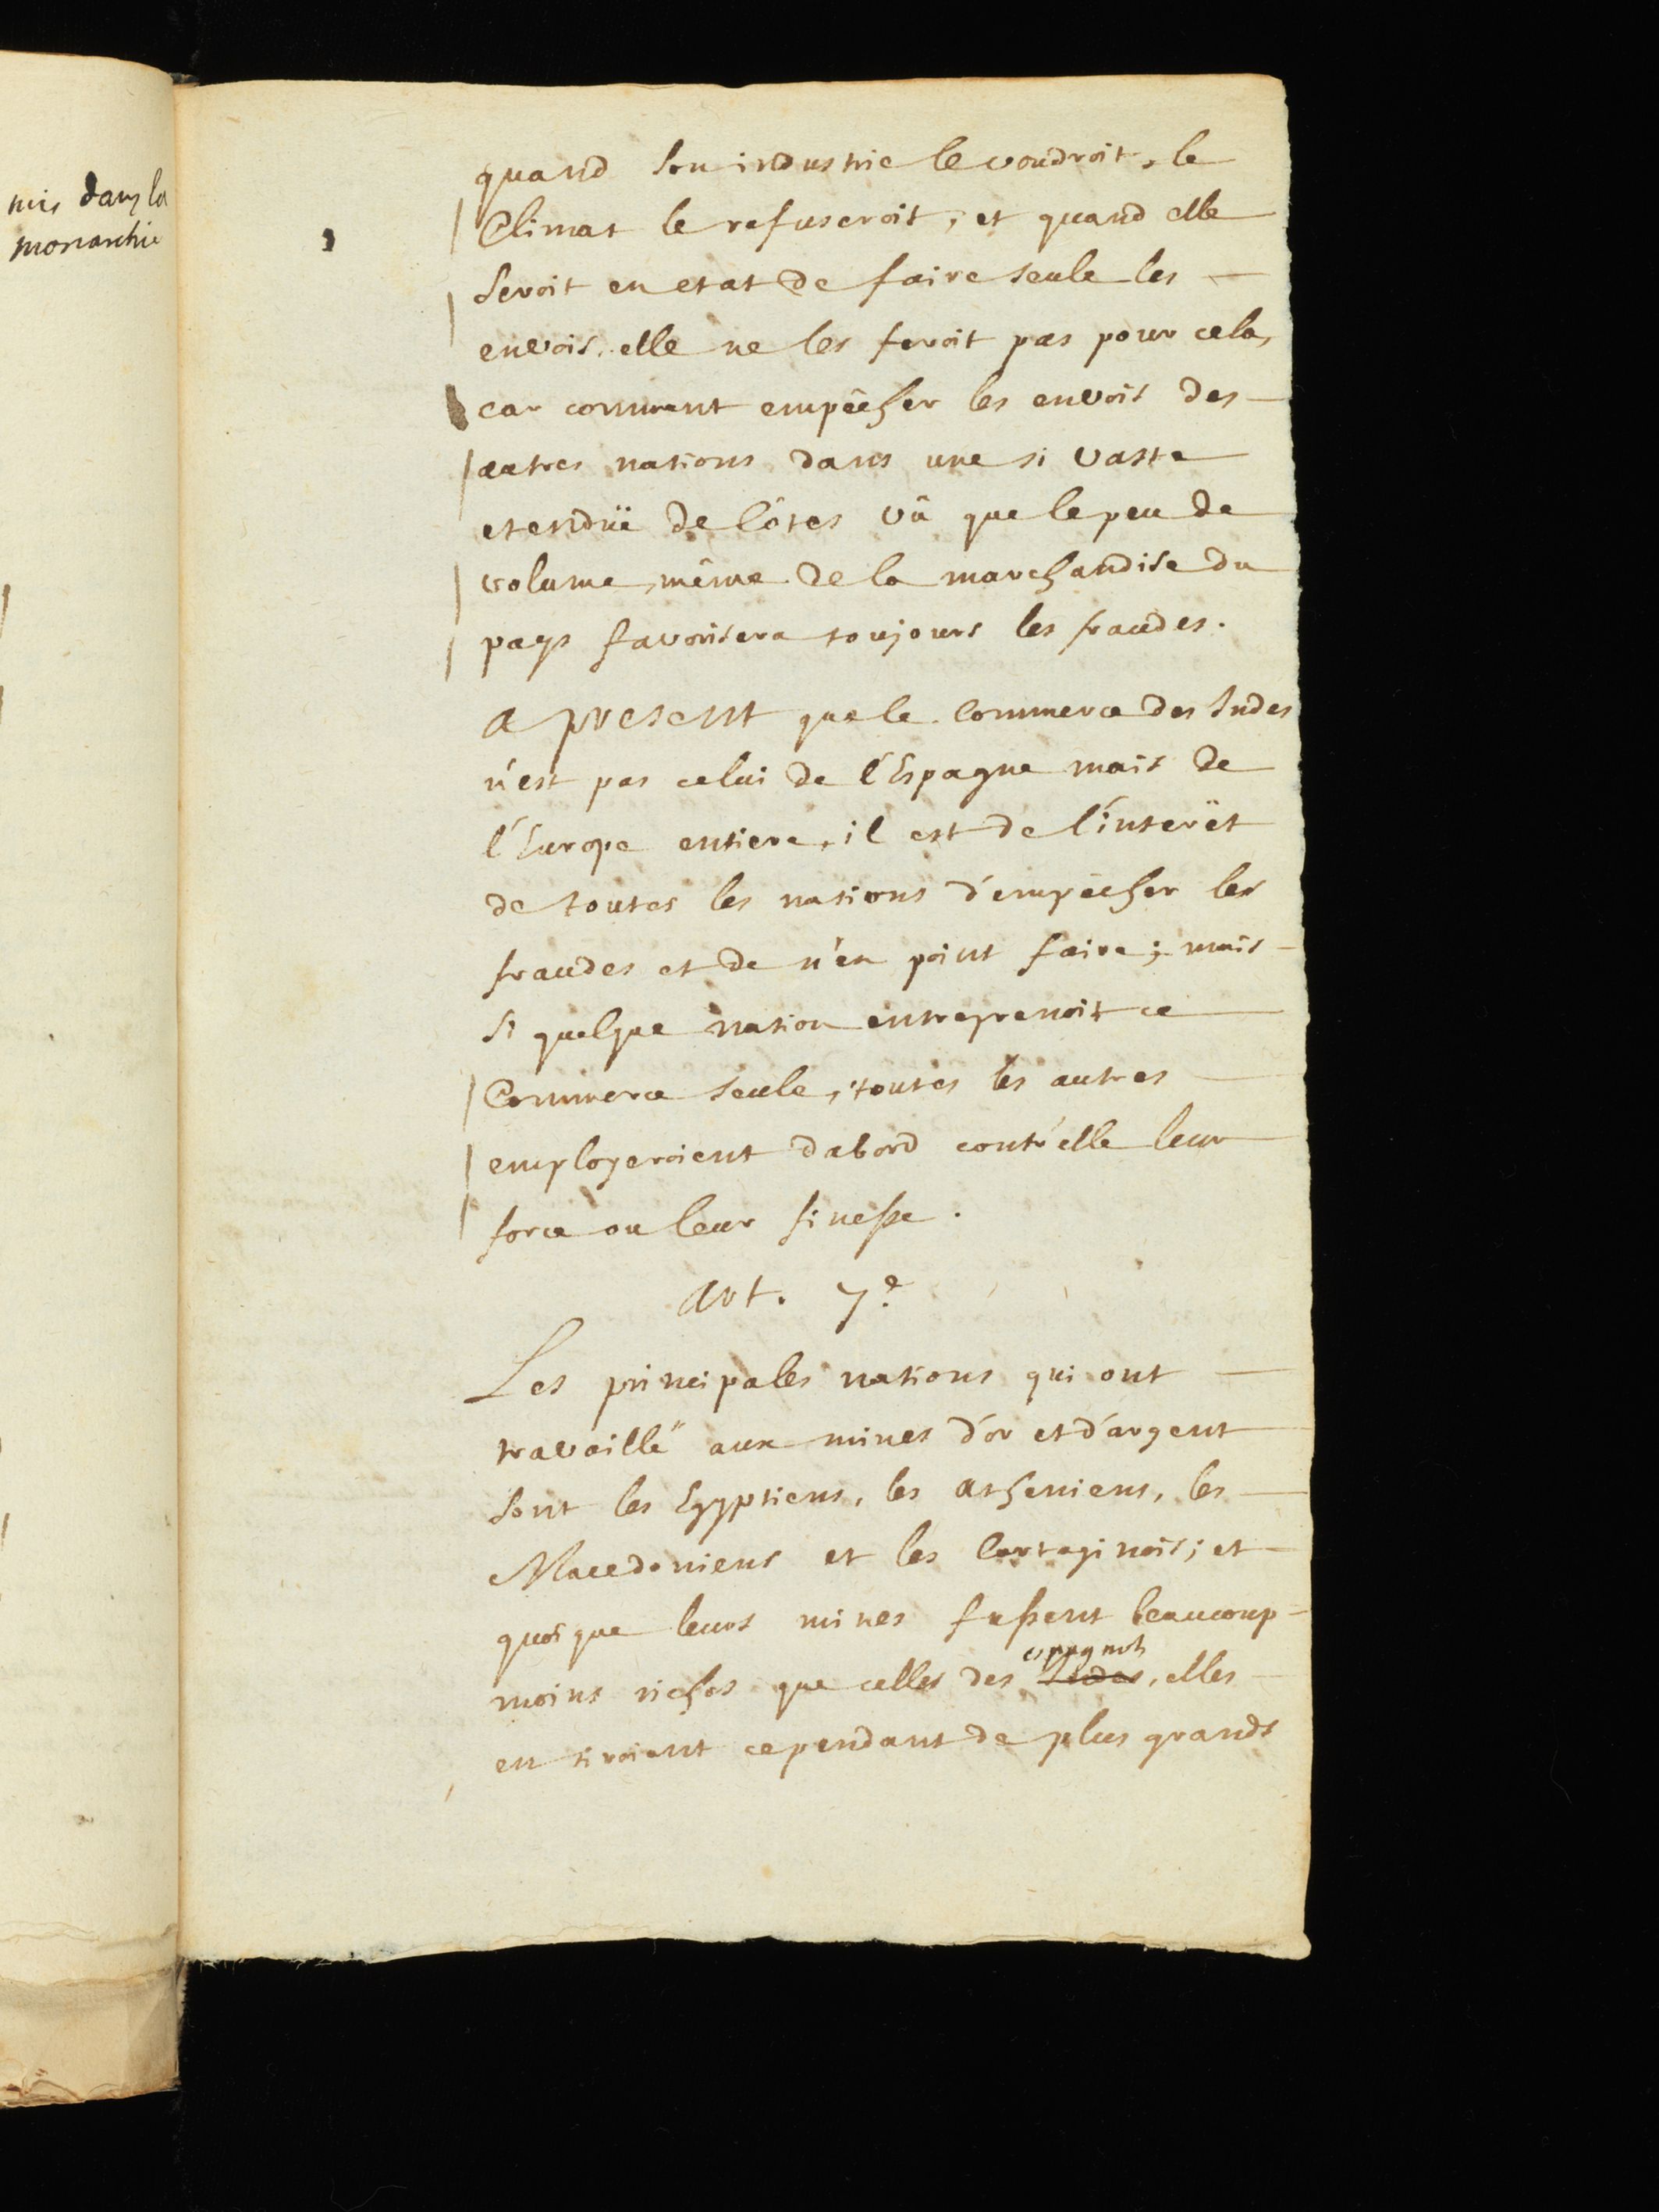 mis dans la
monarchie
quand son industrie le voudroit, le
Climat le refuseroit; et quand elle
seroit en etat de faire seule les
envois, elle ne les feroit pas pour cela,
car comment empêcher les envois des
autres nations dans une si vaste
etendüe de Côtes vû que le peu de
volume, même de la marchandise du
pays favorisera toujours les fraudes.
a present que le Commerce des Indes
n'est pas celui de l'Espagne mais de
l'Europe entiere, il est de l'interêt
de toutes les nations d'empêcher les
fraudes et de n'en point faire; mais
si quelque nation entreprenoit ce
Commerce seule, toutes les autres
employeroient d'abord contr'elle leur
force ou leur finesse.
art. 7e
Les principales nations qui ont
travaillé aux mines d'or et d'argent
sont les Egyptiens, les atheniens, les
Macedoniens et les Cartaginois; et
quoique leurs mines fussent beaucoup
espagnols
moins riches que celles des Indes, elles
en tiroient cependant de plus grands